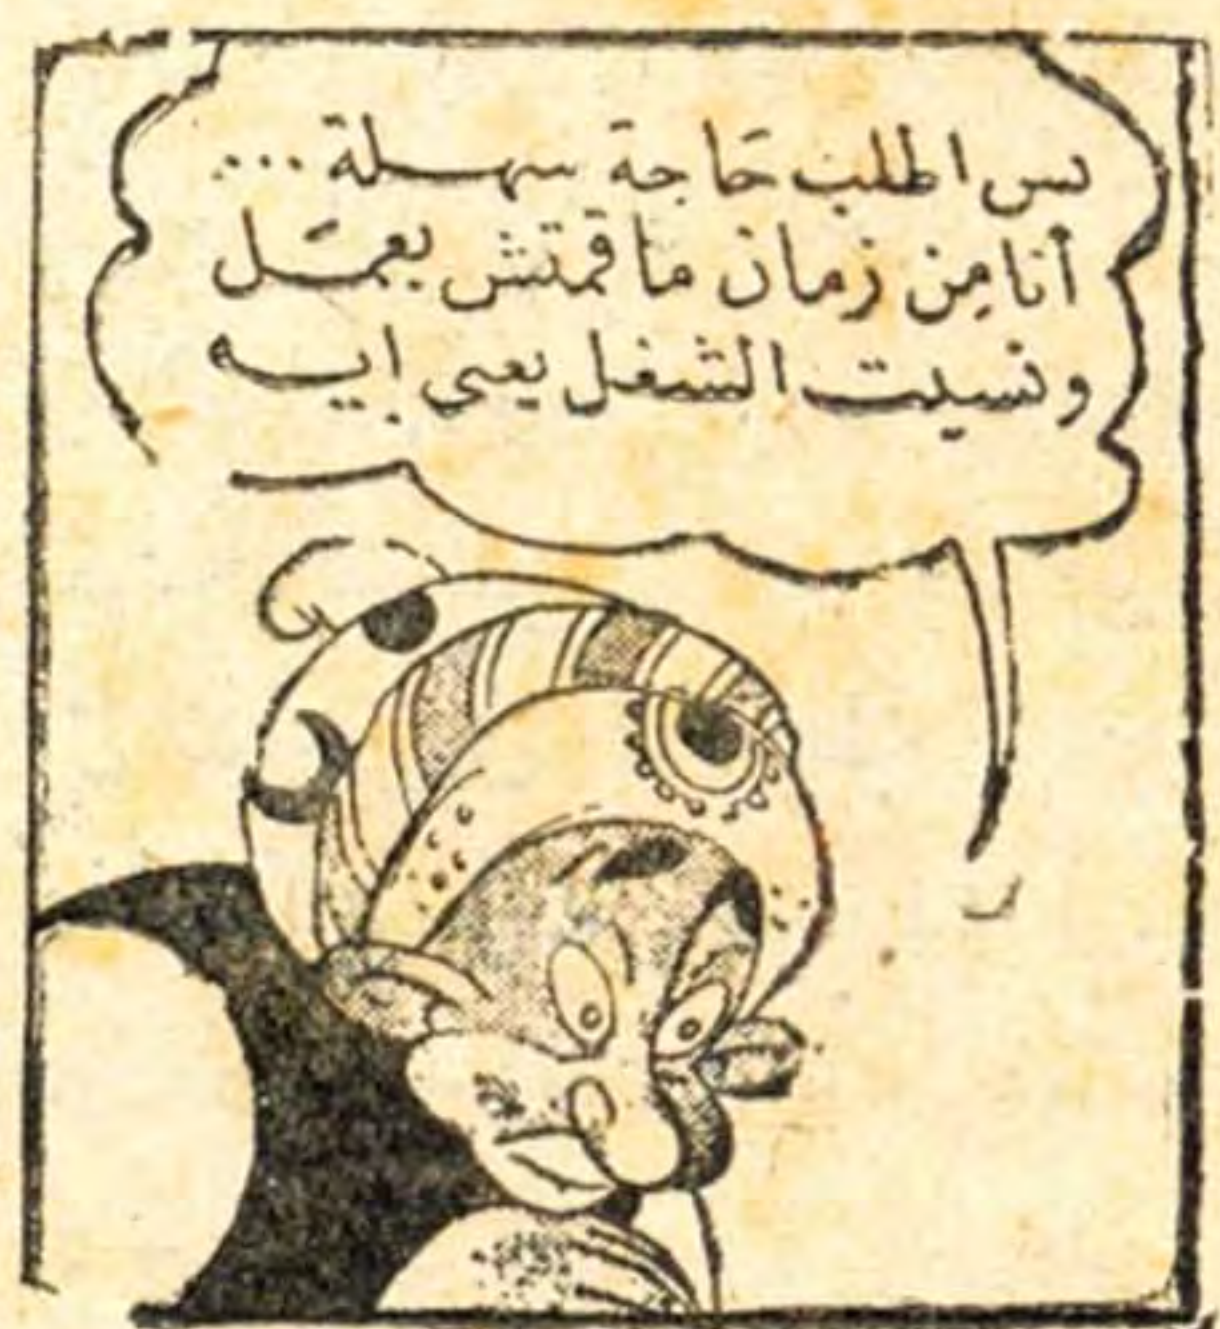 بس اطلب حَاجة سهلة ...
أنا مِن زمان ما قمتش بعمَل
ونسيت الشغل يعني إيه